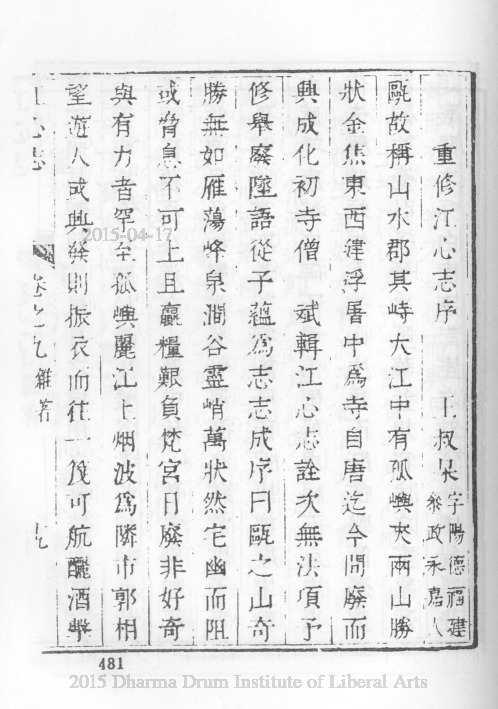 重修江心志序 王叔杲字陽德福建
叅政永嘉人
甌故稱山水郡其峙大江中有孤嶼夾兩山勝
狀金焦東西建浮屠中為寺自唐迄今間廢而
興成化初寺僧 斌輯江心志詮次無法項予
修舉廢墜語從子蘊為志志成序曰甌之山奇
勝無如雁蕩峰泉澗谷靈峭萬狀然宅幽而阻
或脅息不可上且贏糧艱負梵宮日廢非好奇
與有力者罕至孤嶼麗江上烟波為隣市郭相
望遊人或興發則振衣而往一筏可航釃酒擊
江心志 卷之九雜著 九
481
2015-04-17
2015 Dharma Drum Institute of Liberal Arts